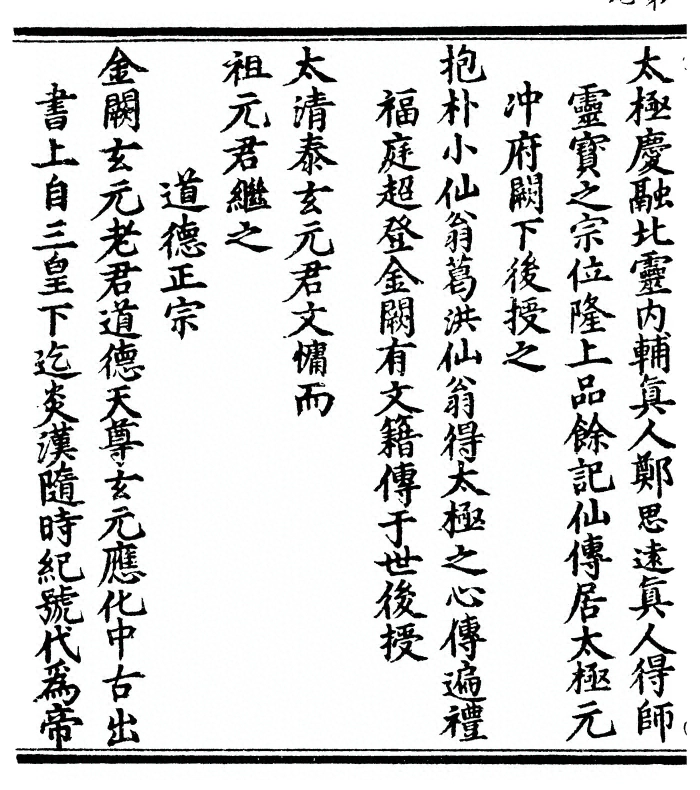 太極慶融北靈内輔眞人鄭思遠眞人得師
靈寶之宗位隆上品餘記仙傳居太極元
冲府闕下後授之
抱朴小仙翁葛洪仙翁得太極之心傳遍禮
福庭超登金闕有文籍傳于世後授
太清泰玄元君文慵而
祖元君繼之
道德正宗
金闕玄元老君道德天尊玄元應化中古出
書上自三皇下迄炎漢隨時紀號代爲帝